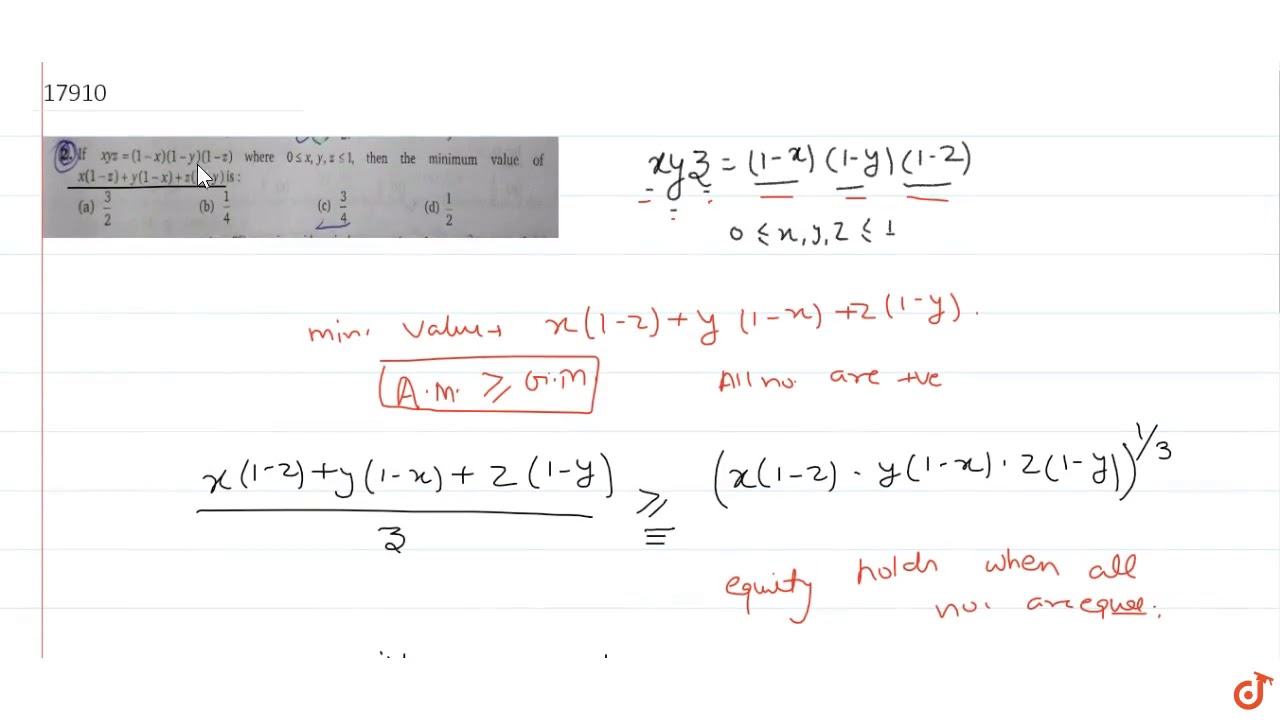 17910
2. If xyz = (1-x)(1-y)(1-z) where 0 ≤ x, y, z ≤ 1, then the minimum value of
x(1-z)+y(1-x)+z( y) is :
(a) 3/2 (b) 1/4 (c) 3/4 (d) 1/2
xyz = (1-x) (1-y) (1-z)
0 ≤ x, y, z ≤ 1
min. value → x(1-z) + y (1-x) + z (1-y).
A.M. ≥ G.M
All no. are +ve
x(1-z)+y(1-x)+ z(1-y) / 3 ≥ (x(1-z) · y(1-x) · z(1-y))^1/3
equity holds when all
no. are equal.